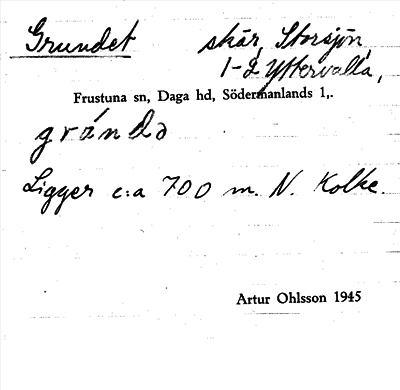 Grundet skär, Storsjön,
1-2 Yttervalla,
Frustuna sn, Daga hd, Södermanlands l,.
grúndə
Ligger c:a 700 m. N. Kolke.
Artur Ohlsson 1945